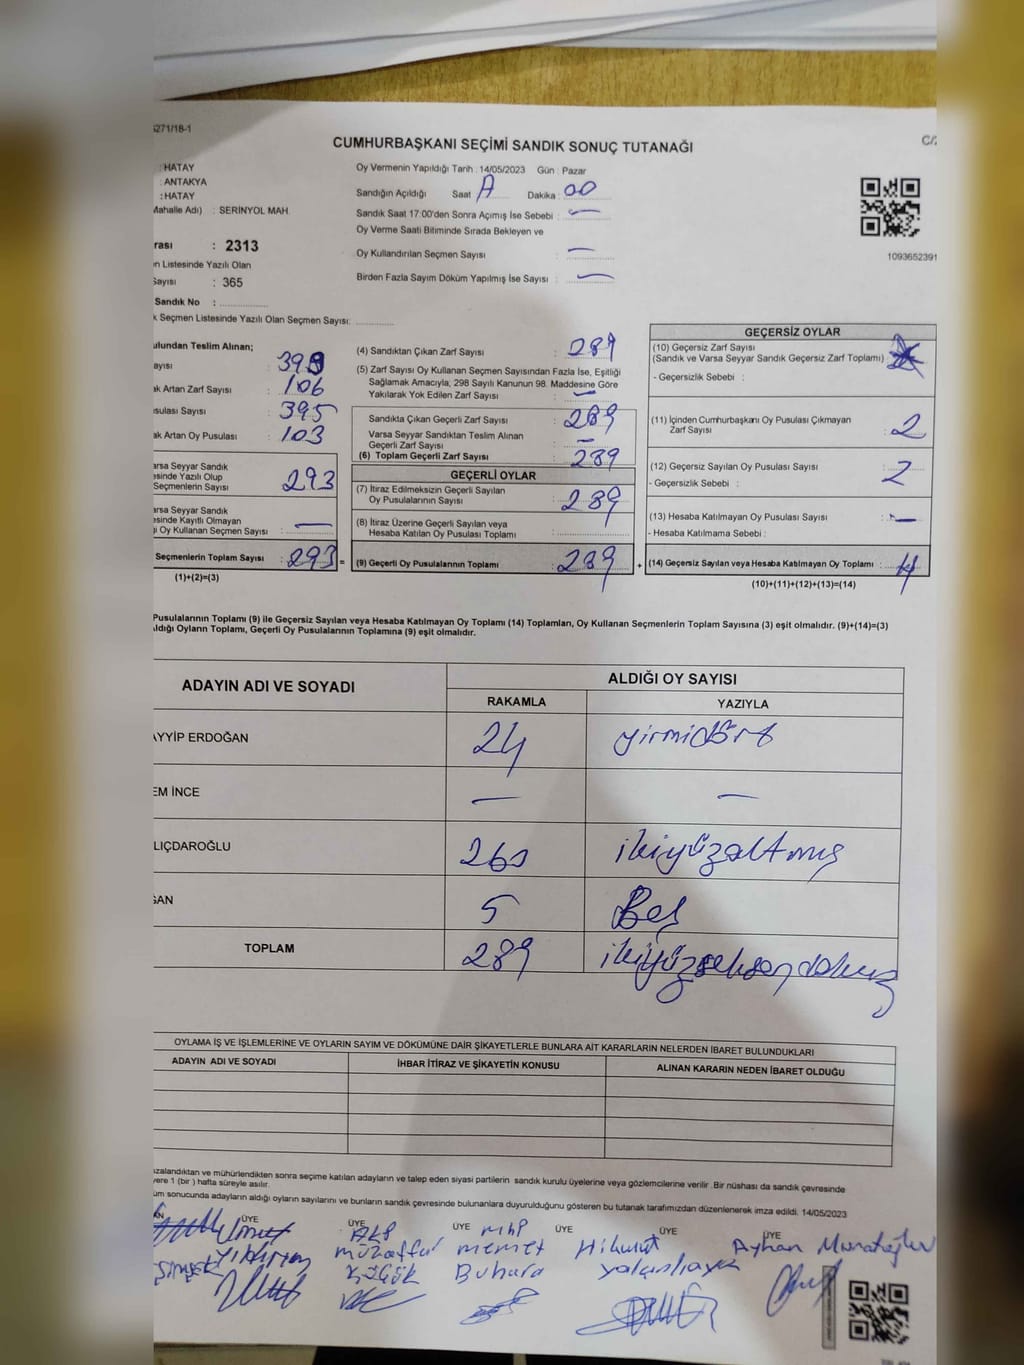 5271/18-1
CUMHURBAŞKANI SEÇİMİ SANDIK SONUÇ TUTANAĞI
C/2
: HATAY
: ANTAKYA
: HATAY
Mahalle Adı) : SERİNYOL MAH.
Oy Vermenin Yapıldığı Tarih : 14/05/2023 Gün : Pazar
Sandığın Açıldığı Saat Dakika : 00
Sandık Saat 17:00'den Sonra Açımış İse Sebebi : —
Oy Verme Saati Bitiminde Sırada Bekleyen ve
Oy Kullandırılan Seçmen Sayısı : —
Birden Fazla Sayım Döküm Yapılmış İse Sayısı : —
1093652391
rası : 2313
n Listesinde Yazılı Olan
Sayısı : 365
Sandık No :
k Seçmen Listesinde Yazılı Olan Seçmen Sayısı:
ulundan Teslim Alınan;
ayısı
ak Artan Zarf Sayısı 106
usulası Sayısı 395
ak Artan Oy Pusulası : 103
arsa Seyyar Sandık
esinde Yazılı Olup
Seçmenlerin Sayısı : 293
arsa Seyyar Sandık
esinde Kayıtlı Olmayan
Oy Kullanan Seçmen Sayısı : —
Seçmenlerin Toplam Sayısı : 293 =
(1)+(2)=(3)
(4) Sandıktan Çıkan Zarf Sayısı : 289
(5) Zarf Sayısı Oy Kullanan Seçmen Sayısından Fazla İse, Eşitliği
Sağlamak Amacıyla, 298 Sayılı Kanunun 98. Maddesine Göre
Yakılarak Yok Edilen Zarf Sayısı : —
Sandıkta Çıkan Geçerli Zarf Sayısı : 289
Varsa Seyyar Sandıktan Teslim Alınan
Geçerli Zarf Sayısı : —
(6) Toplam Geçerli Zarf Sayısı : 289
GEÇERLİ OYLAR
(7) İtiraz Edilmeksizin Geçerli Sayılan
Oy Pusulalarının Sayısı : 289
(8) İtiraz Üzerine Geçerli Sayılan veya
Hesaba Katılan Oy Pusulası Toplamı :
(9) Geçerli Oy Pusulalarının Toplamı : 289 +
GEÇERSİZ OYLAR
(10) Geçersiz Zarf Sayısı
(Sandık ve Varsa Seyyar Sandık Geçersiz Zarf Toplamı) :
- Geçersizlik Sebebi :
(11) İçinden Cumhurbaşkanı Oy Pusulası Çıkmayan
Zarf Sayısı : 2
(12) Geçersiz Sayılan Oy Pusulası Sayısı : 2
- Geçersizlik Sebebi :
(13) Hesaba Katılmayan Oy Pusulası Sayısı : —
- Hesaba Katılmama Sebebi :
(14) Geçersiz Sayılan veya Hesaba Katılmayan Oy Toplamı : 4
(10)+(11)+(12)+(13)=(14)
Pusulalarının Toplamı (9) ile Geçersiz Sayılan veya Hesaba Katılmayan Oy Toplamı (14) Toplamları, Oy Kullanan Seçmenlerin Toplam Sayısına (3) eşit olmalıdır. (9)+(14)=(3)
aldığı Oyların Toplamı, Geçerli Oy Pusulalarının Toplamına (9) eşit olmalıdır.
ADAYIN ADI VE SOYADI ALDIĞI OY SAYISI
RAKAMLA YAZIYLA
AYYİP ERDOĞAN 24 yirmidört
EM İNCE — —
LIÇDAROĞLU 260 ikiyüzaltmış
ĞAN 5 Beş
TOPLAM 289 ikiyüzseksendokuz
OYLAMA İŞ VE İŞLEMLERİNE VE OYLARIN SAYIM VE DÖKÜMÜNE DAİR ŞİKAYETLERLE BUNLARA AİT KARARLARIN NELERDEN İBARET BULUNDUKLARI
ADAYIN ADI VE SOYADI İHBAR İTİRAZ VE ŞİKAYETİN KONUSU ALINAN KARARIN NEDEN İBARET OLDUĞU
zalandıktan ve mühürlendikten sonra seçime katılan adayların ve talep eden siyasi partilerin sandık kurulu üyelerine veya gözlemcilerine verilir .Bir nüshası da sandık çevresinde
yere 1 (bir ) hafta süreyle asılır.
üm sonucunda adayların aldığı oyların sayılarını ve bunların sandık çevresinde bulunanlara duyurulduğunu gösteren bu tutanak tarafımızdan düzenlenerek imza edildi. 14/05/2023
ÜYE ÜYE ÜYE ÜYE ÜYE ÜYE
Umut AKP MHP
Yıldırım Muzaffer Memet Hikmet Ayhan
Küçük Buhara